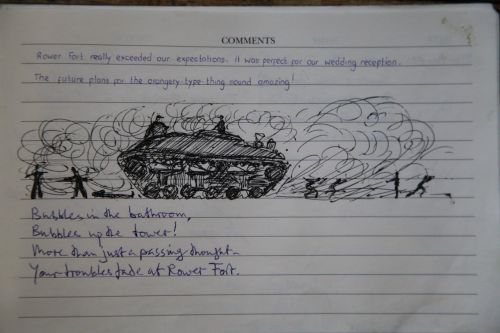 COMMENTS
Rower Fort really exceeded our expectations. it was perfect for our wedding reception.
The future plans for the orangery-type-thing sound amazing!
Bubbles in the bathroom,
Bubbles up the tower!
More than just a passing thought-
Your troubles fade at Rower Fort.